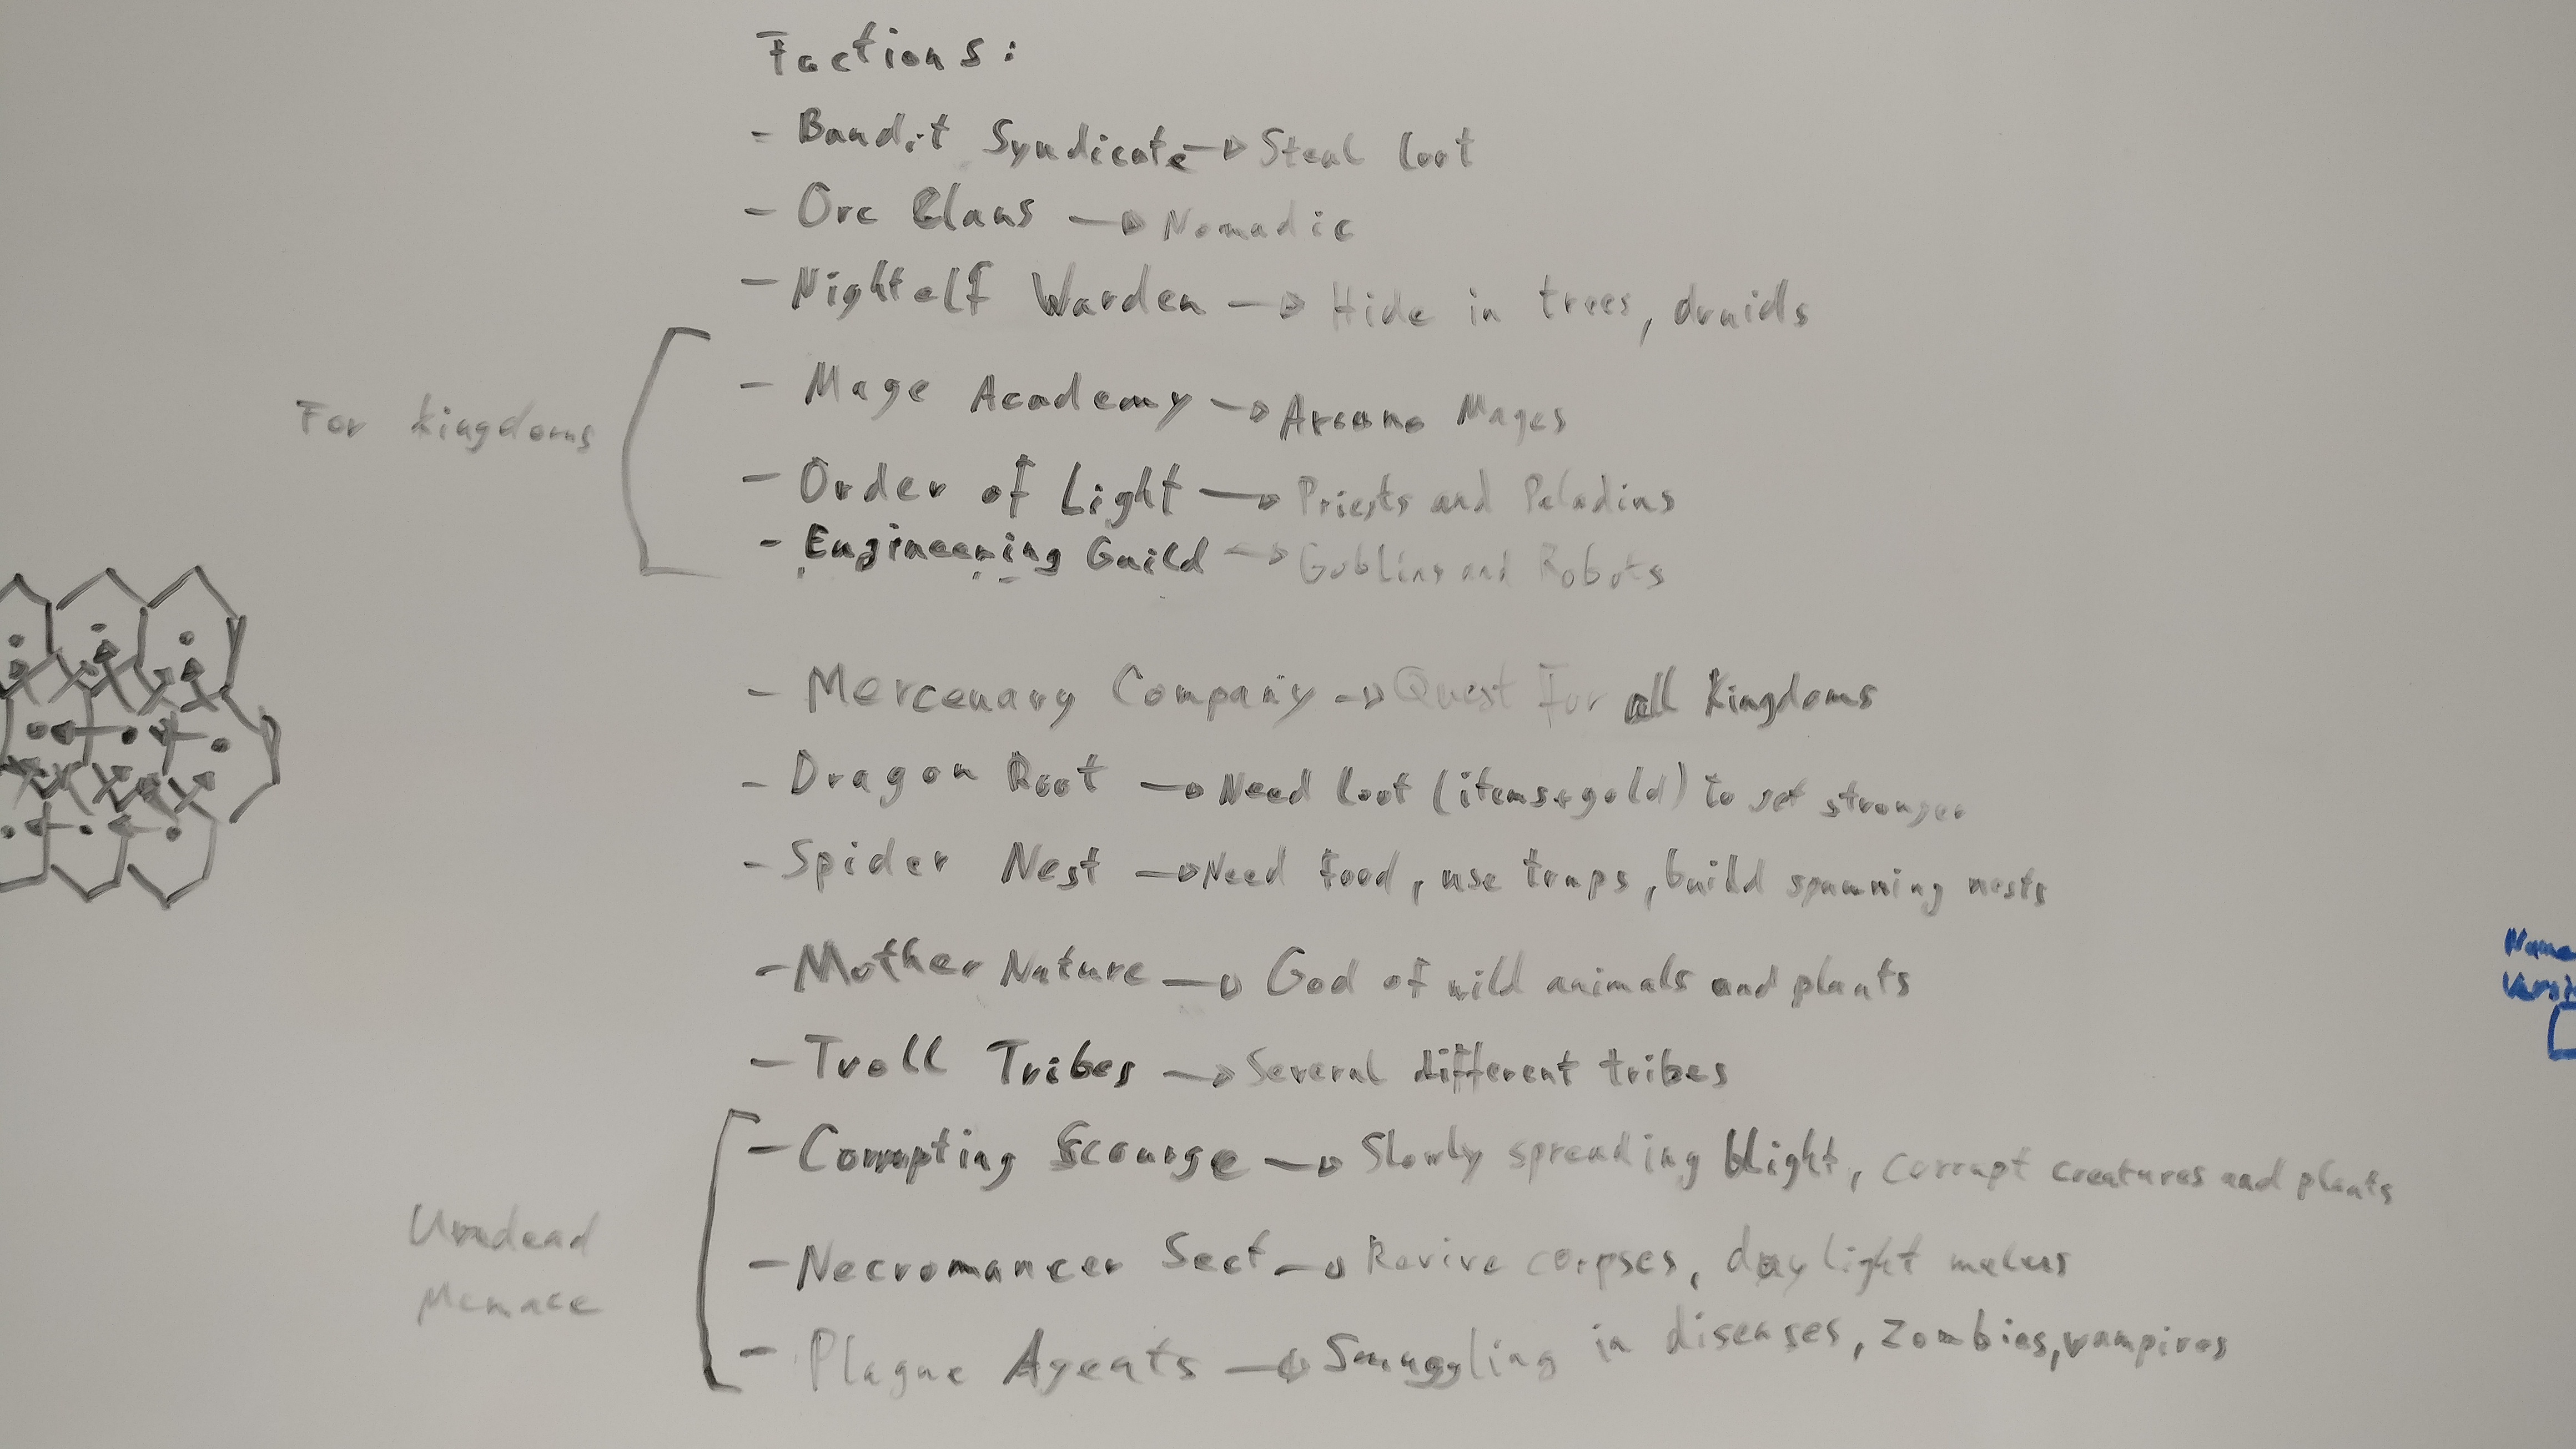 Factions:
- Bandit Syndicate → Steal loot
- Orc Clans → Nomadic
- Nightelf Warden → Hide in trees, druids
For kingdoms
- Mage Academy → Arcane Mages
- Order of Light → Priests and Paladins
- Engineering Guild → Goblins and Robots
- Mercenary Company → Quest For all kingdoms
- Dragon Root → Need loot (items+gold) to get stronger
- Spider Nest → Need food, use traps, build spawning nests
- Mother Nature → God of wild animals and plants
- Troll Tribes → Several different tribes
Undead
Menace
- Corrupting Scourge → Slowly spreading blight, corrupt creatures and plants
- Necromancer Sect → Revive corpses, daylight makes
- Plague Agents → Smuggling in diseases, zombies, vampires
Name